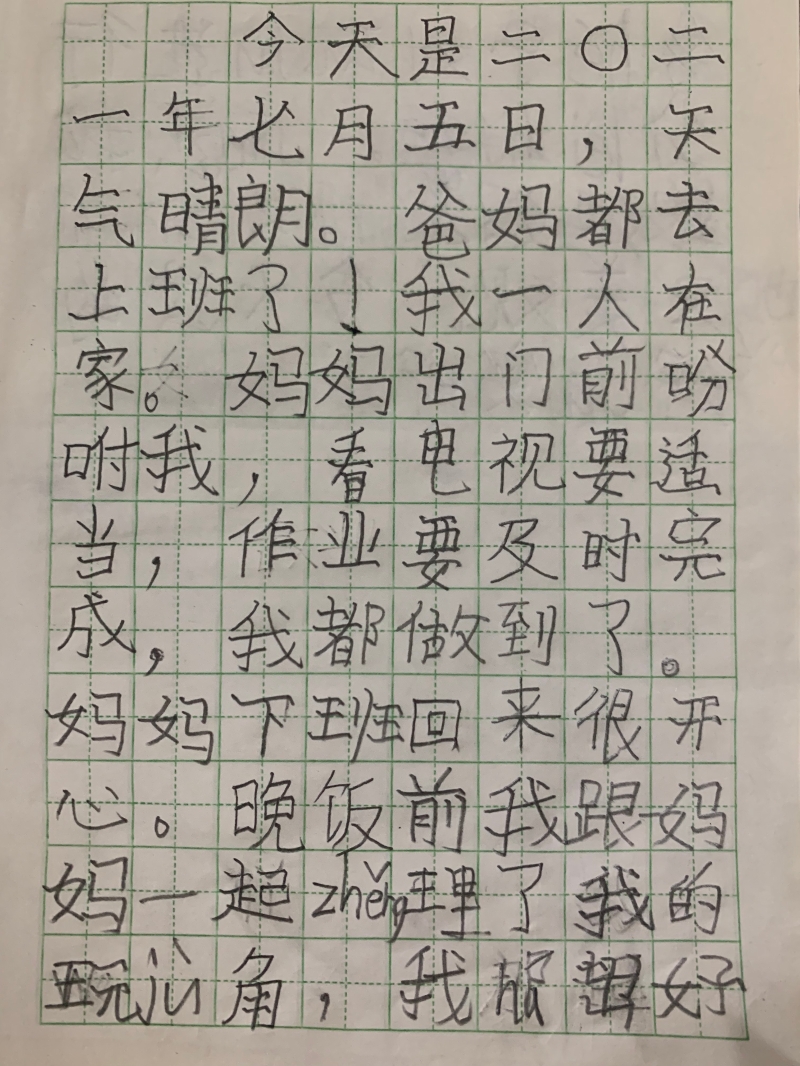 今天是二〇二
一年七月五日，天
气晴朗。爸妈都去
上班了！我一人在
家。妈妈出门前吩
咐我，看电视要适
当，作业要及时完
成，我都做到了。
妈妈下班回来很开
心。晚饭前我跟妈
妈一起zhěng理了我的
玩jù角，我 好